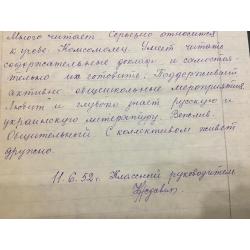 Много читает. Серьезно относится
к учебе. Комсомолец. Умеет читать
содержательные доклады и самостоя-
тельно их готовить. Поддерживает
активно общешкольные мероприятия.
Любит и глубоко знает русскую и
украинскую литературу. Вежлив.
Общительный. С коллективом живет
дружно.
11.6.52 г. Классный руководитель